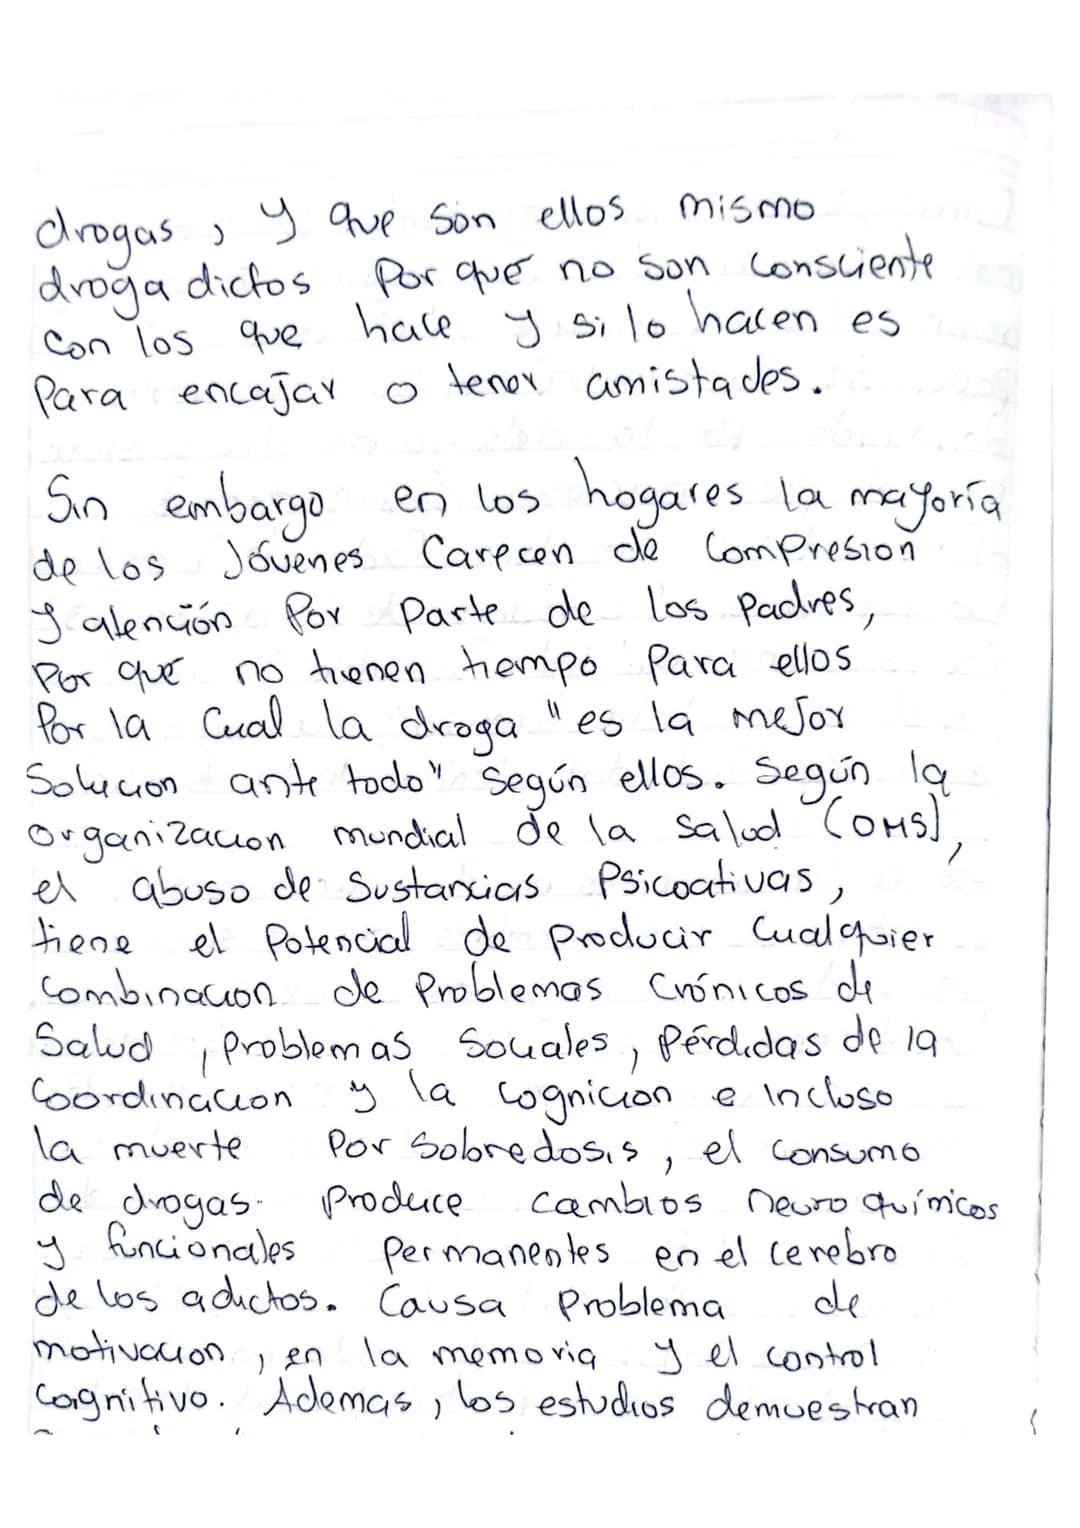 drogas, y que son ellos mismo
droga dictos Por qué no son consciente
con los que hace y si lo hacen es
Para encajar o tener amistades.
Sin embargo en los hogares la mayoría
de los Jóvenes Carecen de Compresion
y atención Por Parte de los padres,
Por qué no tienen tiempo Para ellos
Por la Cual la droga "es la mejor
Solucion ante todo" Según ellos. Según la
organizacion mundial de la salud (OMS),
el abuso de Sustancias Psicoativas,
tiene el Potencial de producir Cualquier
Combinacion de Problemas Crónicos de
Salud, problemas Sociales, Pérdidas de la
Coordinacion y la Cognicion e Incluso
la muerte Por Sobredosis, el Consumo
de drogas. Produce cambios neuro químicos
y funcionales Permanentes en el cerebro
de los adictos. Causa Problema de
motivacion, en la memoria y el control
Cognitivo. Ademas, los estudios demuestran